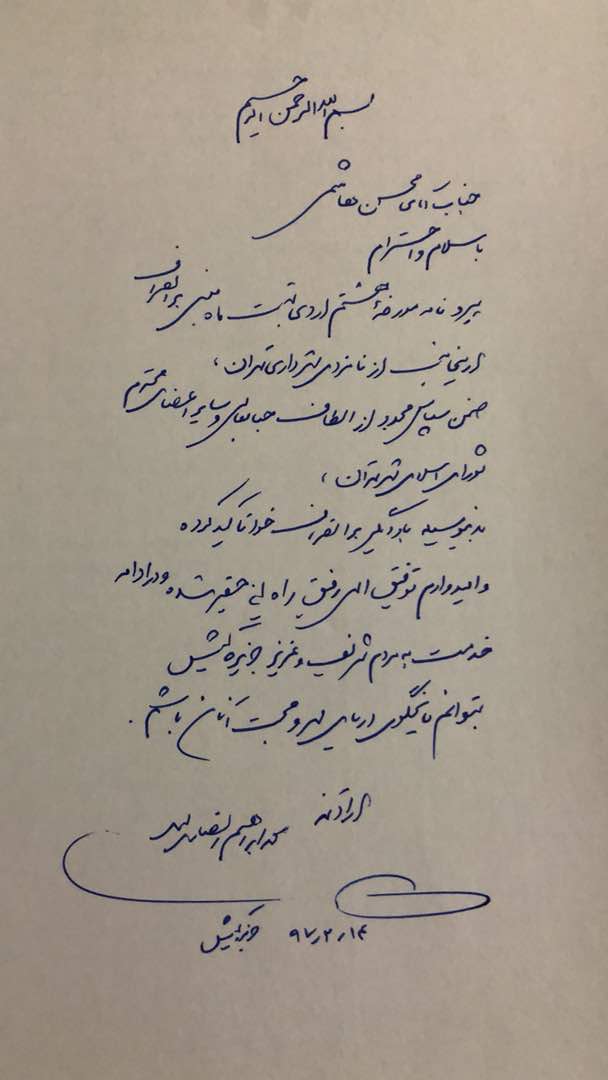 بسم الله الرحمن الرحیم
جناب آقای محسن هاشمی
با سلام و احترام
پیرو نامه مورخهٔ هشتم اردی بهشت ماه مبنی بر انصراف
اینجانب از نامزدی شهرداری تهران ،
ضمن سپاس مجدد از الطاف جنابعالی و سایر اعضای محترم
شورای اسلامی شهر تهران ،
بدینوسیله بار دیگر بر انصراف خود تاکید کرده
و امیدوارم توفیق الهی رفیق راه این حقیر شده و در ادامه
خدمت به مردم شریف و عزیز جزیره کیش
بتوانم پاسخگوی دریای مهر و محبت آنان باشم .
ارادتمند
محمد ابراهیم انصاری لاری
۹۷،۲،۱۴ جزیره کیش